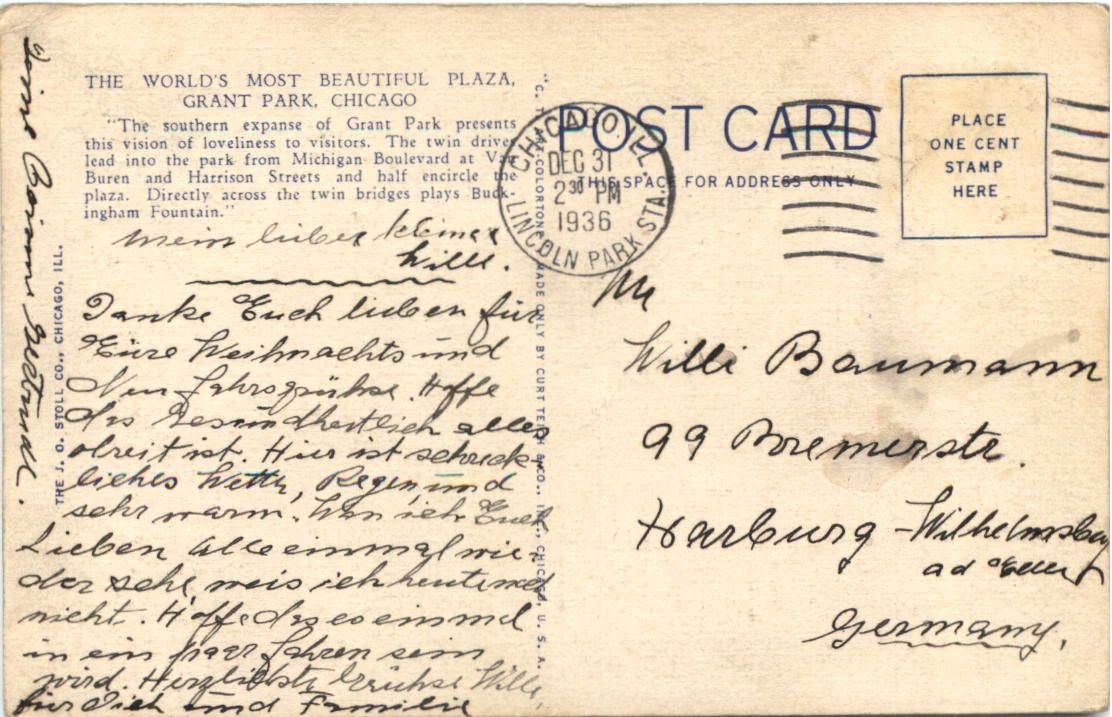 THE WORLD'S MOST BEAUTIFUL PLAZA,
GRANT PARK, CHICAGO
"The southern expanse of Grant Park presents
this vision of loveliness to visitors. The twin drives
lead into the park from Michigan Boulevard at Van
Buren and Harrison Streets and half encircle the
plaza. Directly across the twin bridges plays Buck-
ingham Fountain."
mein lieber kleiner
Willi.
Danke Euch lieben für
Eure Weihnachts und
Neu Jahrsgrühse. Hoffe
das Gesundheitlich alles
obreit ist. Hier ist schreck-
liches Wetter, Regen, und
sehr warm. Wan ich Euch
Lieben alle einmal wie-
der sehe, weis ich heute noch
nicht. Hoffe das es einmal
in ein paar Jahren sein
wird. Herzlichste Grühse Willi,
für Dich und Familie
Gertrude.
THE J. O. STOLL CO., CHICAGO, ILL.
MADE ONLY BY CURT TEICH & CO., INC., CHICAGO, U. S. A.
POST CARD
THIS SPACE FOR ADDRESS ONLY
CHICAGO, ILL.
DEC 31
2 30 PM
1936
LINCOLN PARK STA.
PLACE
ONE CENT
STAMP
HERE
Willi Baumann
99 Bremerstr.
Harburg-Wilhelmsburg
ad Elbe
Germany.